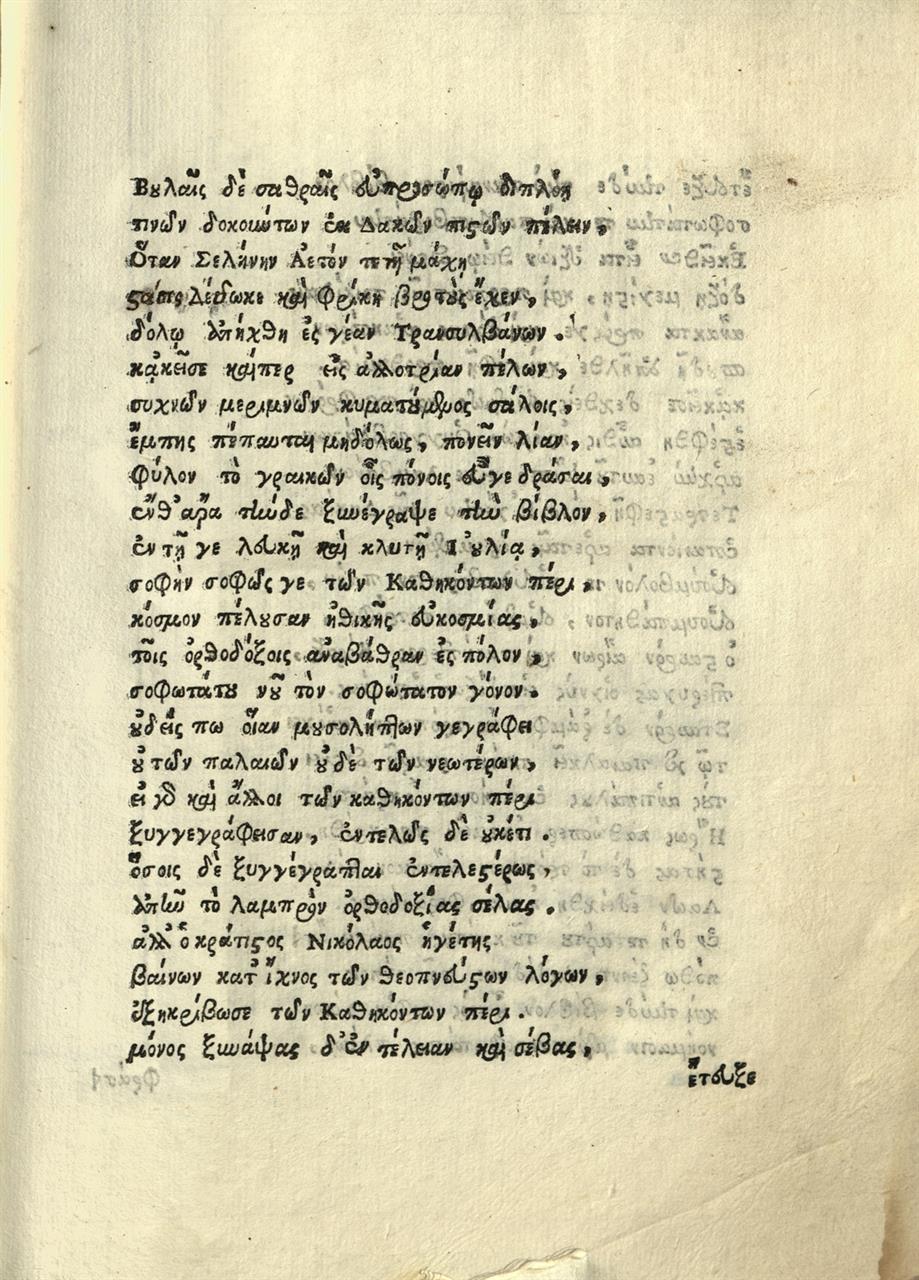 Βουλαῖς δὲ σαθραῖς εὐπροσώπῳ διπλόῃ
τινῶν δοκούντων ἐκ Δακῶν πιστῶν πέλειν,
Ὅταν Σελήνην Ἀετόν τε τῇ μάχῃ
στάσις Δέδωκε καὶ Φρίκη βροτοὺς ἔχεν,
δόλῳ ἀπήχθη ἐς γέαν Τρανσυλβάνων.
κᾀκεῖσε καίπερ εἰς ἀλλοτρίαν πέλων,
συχνῶν μεριμνῶν κυματούμενος σάλοις,
ἔμπης πέπαυται μηδόλως, πονεῖν λίαν,
Φύλον τὸ γραικῶν οἷς πόνοις εὖγε δράσαι,
ἔνθ' ἄρα τήνδε ξυνέγραψε τὴν βίβλον,
ἐν τῇ γε λευκῇ καὶ κλυτῇ Ἰουλίᾳ,
σοφὴν σοφῶς γε τῶν Καθηκόντων πέρι,
κόσμον πέλουσαν ἠθικῆς εὐκοσμίας,
τοῖς ὀρθοδόξοις ἀναβάθραν ἐς πόλον,
σοφωτάτου νοῦ τὸν σοφώτατον γόνον.
οὐδείς πω οἵαν μουσολήπτων γεγράφει
οὐ τῶν παλαιῶν οὐδὲ τῶν νεωτέρων,
εἰ γὰρ καὶ ἄλλοι τῶν καθηκόντων πέρι
ξυγγεγράφεισαν, ἐντελῶς δὲ οὐκέτι.
ὅσοις δὲ ξυγγέγραπται ἐντελεστέρως,
ἀπῆν τὸ λαμπρὸν ὀρθοδοξίας σέλας.
ἀλλ' ὁ κράτιστος Νικόλαος ἡγέτης
βαίνων κατ' ἴχνος τῶν θεοπνεύστων λόγων,
ἐξηκρίβωσε τῶν Καθηκόντων πέρι.
μόνος ξυνάψας δ' ἐντέλειαν καὶ σέβας,
ἔτευξε